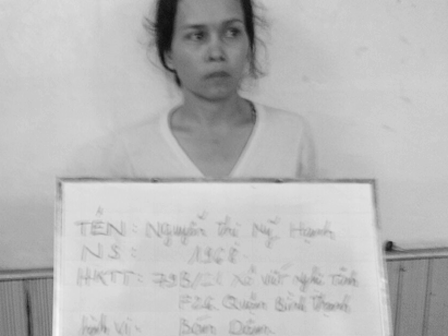 TÊN: Nguyễn Thị Mỹ Hạnh
NS: 1968.
HKTT: Xô viết nghệ Tĩnh
Quận Bình Thạnh
hành vi: Bán Dâm